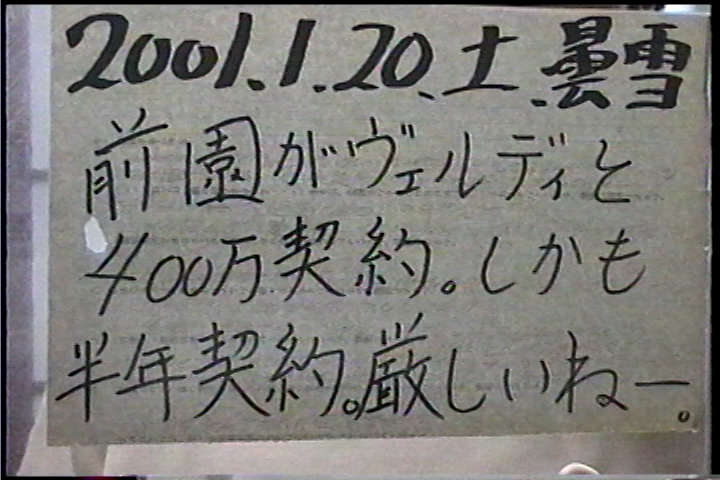 2001.1.20.土.曇雪
前園がヴェルディと
400万契約。しかも
半年契約。厳しいねー。